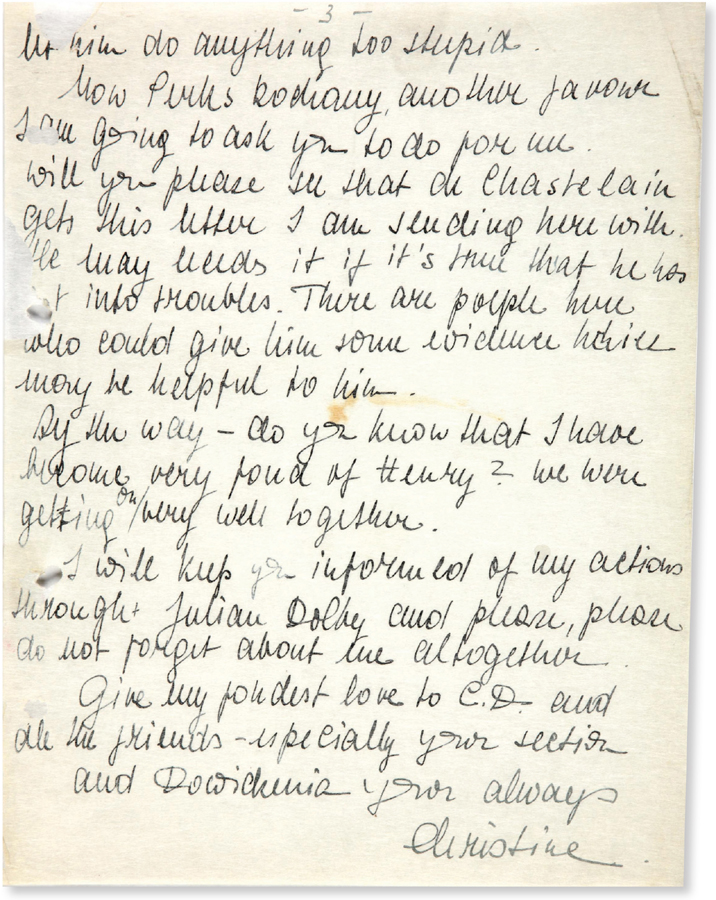 - 3 -
let him do anything too stupid.
Now Perks Kochany, another favour
I am going to ask you to do for me.
Will you please see that de Chastelain
gets this letter I am sending here with.
He may needs it if it's true that he has
into troubles. There are people here
who could give him some evidence
may be helpful to him.
By the way - do you know that I have
become very fond of Henry? we were
getting on/very well together.
I will keep you informed of my actions
through Julian Dolby and please, please
do not forget about me altogether.
Give my fondest love to C.D. and
all the friends - especially your section
and your always
Christine.